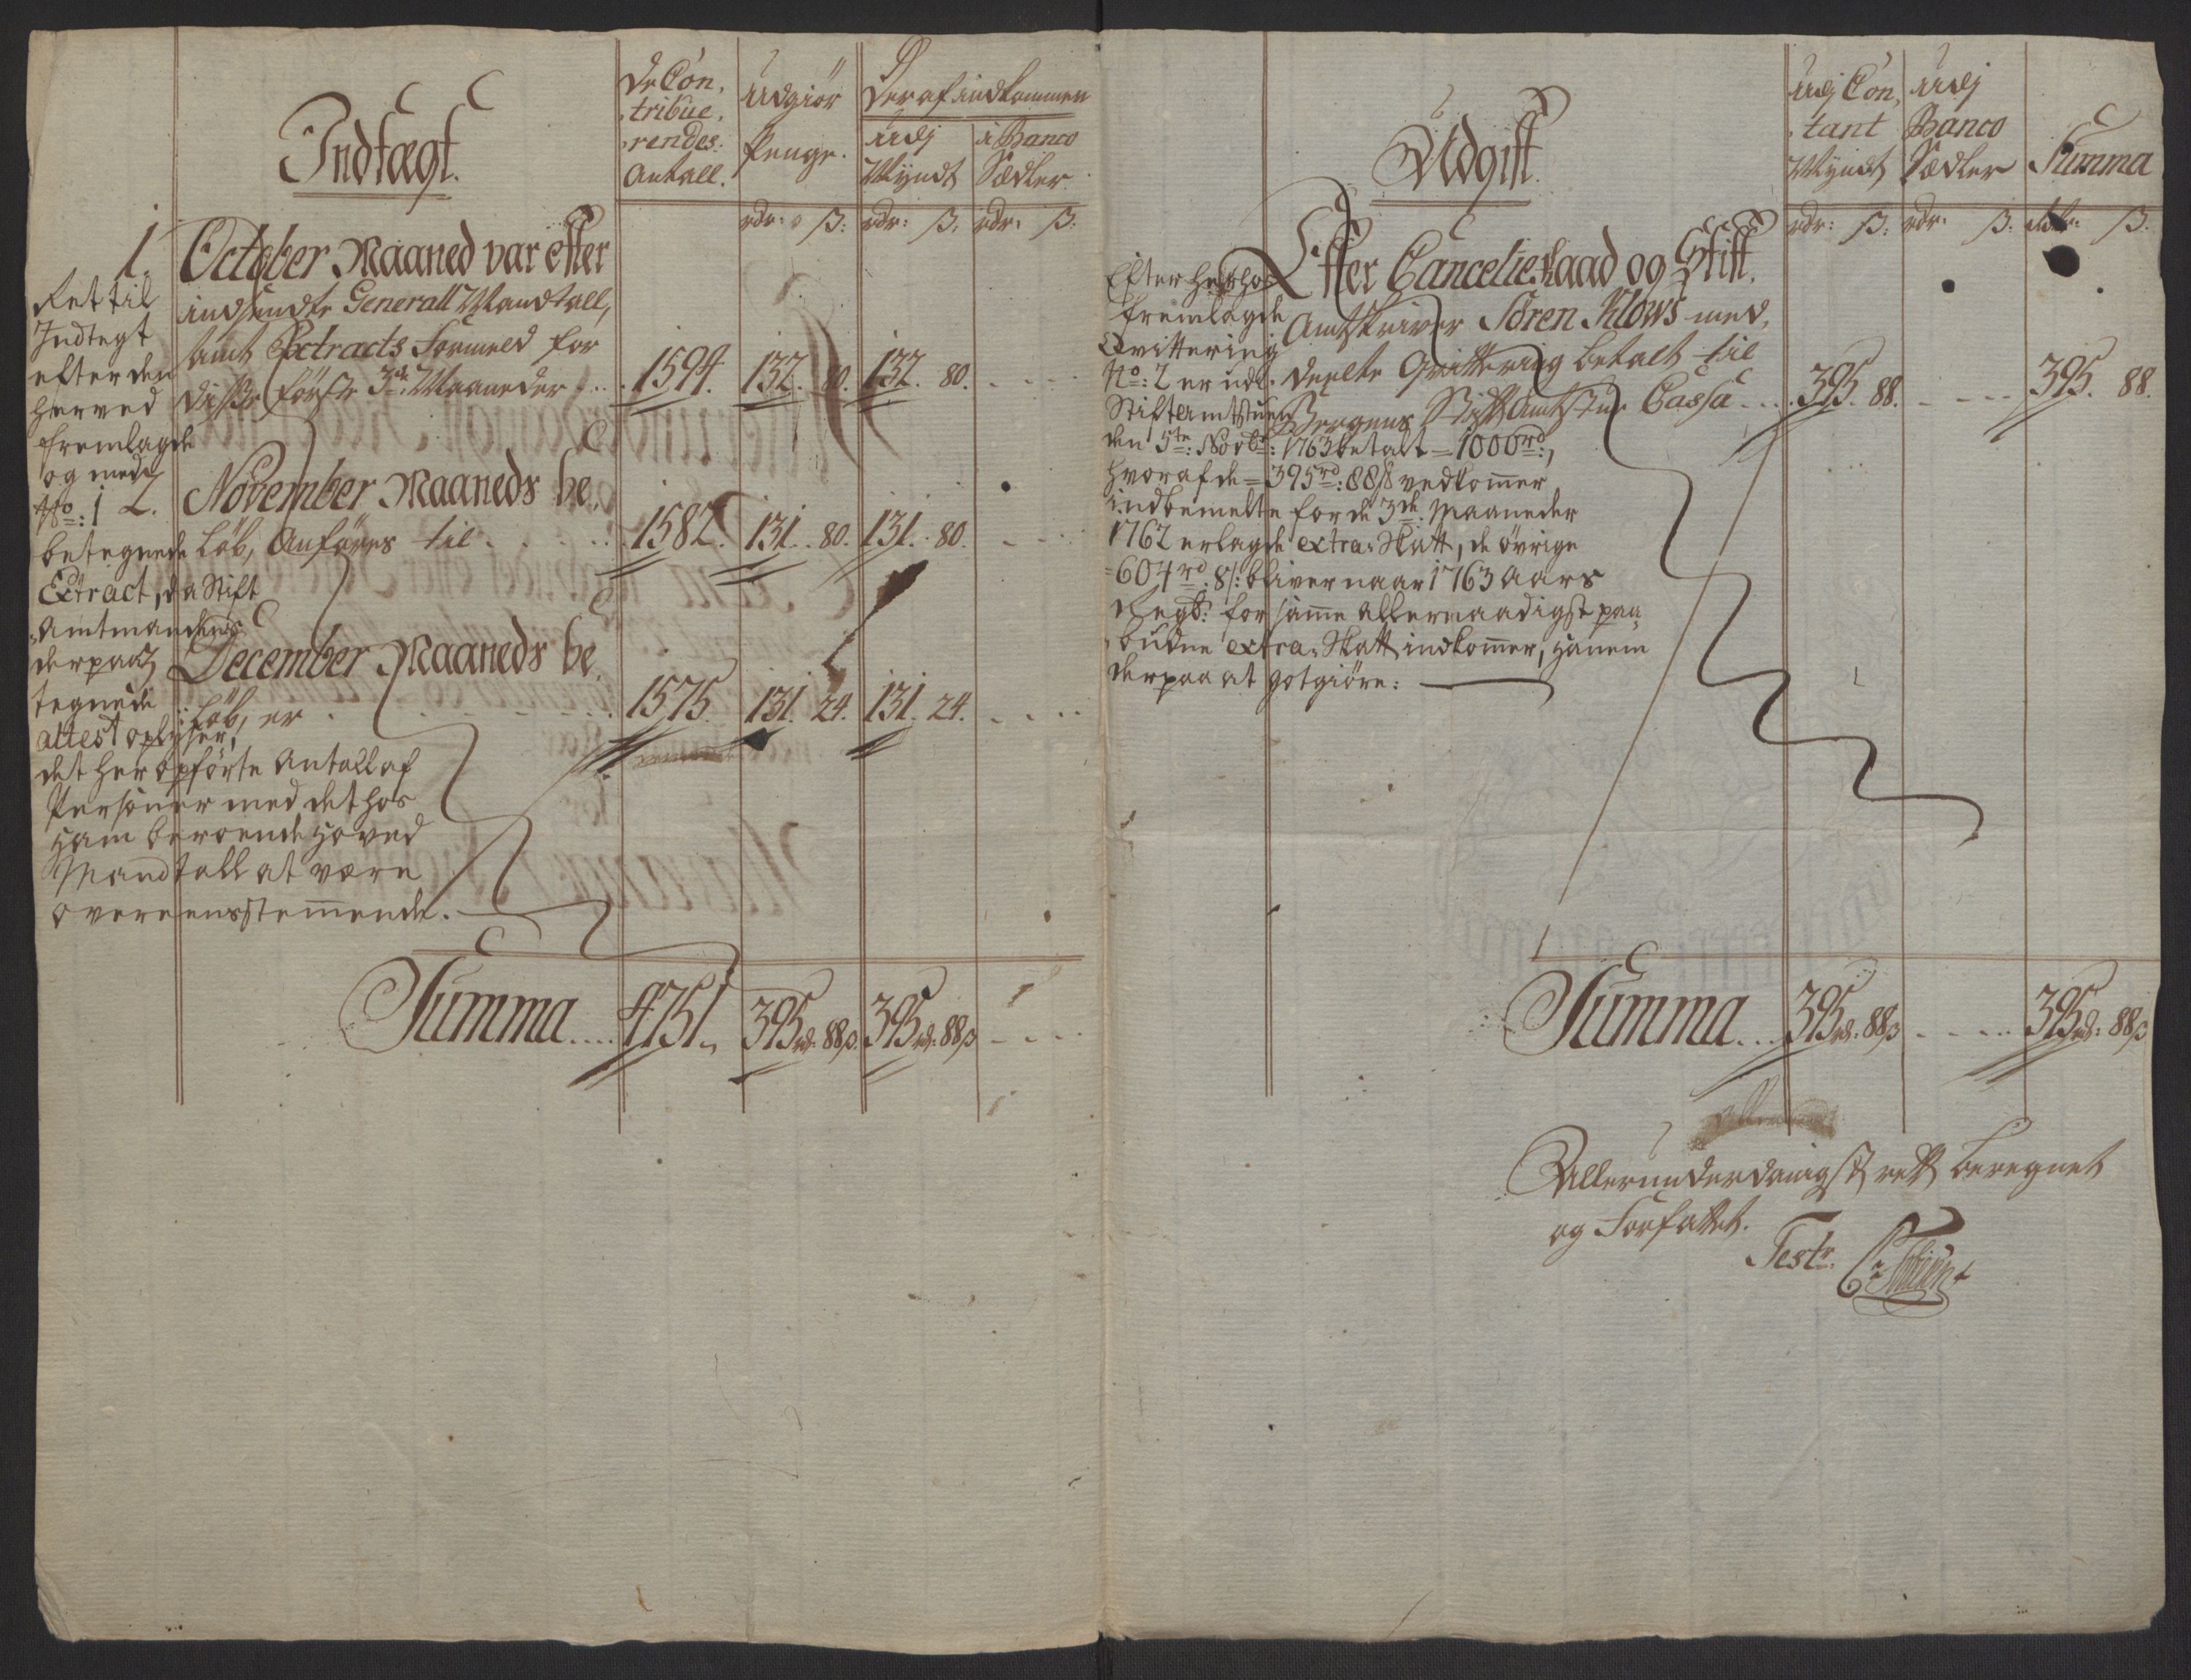 Indtægt.
De Con,
tribue,
rendes.
Antall.
Udgiör
Penge.
Deraf indkommen
udj
Myndt
i Banco
Sædler.
rdr: ß: rdr: ß: rdr: ß:
1. October Maaned var efter
indsendte Generall Mandtall,
samt Extracts Formeld for
disse förste 3de Maaneder . . 1594. 132. 80. 132. 80.
November Maaneds be,
löb, Anföres til . . . 1582. 131. 80. 131. 80.
December Maaneds be,
löb, er . . . 1575. 131. 24. 131. 24.
Summa .... 4751. 395rd. 88ß. 395rd. 88ß
Ret til
Indtegt
efter den
herved
fremlagde
og med
No: 1
betegnede
Extract, da Stift
Amtmandens
derpaa
tegnede
attest oplyser,
det her opförte Antall af
Personer med det hos
ham beroende Hoved
Mandtall at være
overeensstemmende.
Udgift.
udj Con,
tant
Myndt
udj
Banco
Sædler
Summa
rdr: ß: rdr: ß: rdr: ß.
Efter Cancelie Raad og Stift,
Amtskriver Sören Klows med,
deelte Qvittering betalt til
Bergens Stift Amtstue Cassa . . . 395. 88. 395. 88.
Efter herhos
fremlagde
Qvittering
No: 2 er udi
Stiftamtstuen
den 5te: Novbr: 1763 betalt = 1000rd:,
hvoraf de = 395rd: 88ß vedkommer
indbemelte for de 3de Maaneder
1762 erlagde extra Skatt, de övrige
= 604rd: 8ß: bliver naar 1763 Aars
Regb: for samme allernaadigst paa,
budne extra Skatt indkommer, hannem
derpaa at gotgiöre:
Summa ... 395rd. 88ß 395rd: 88ß
Allerunderdanigst rett beregnet
og Forfattet.
Test